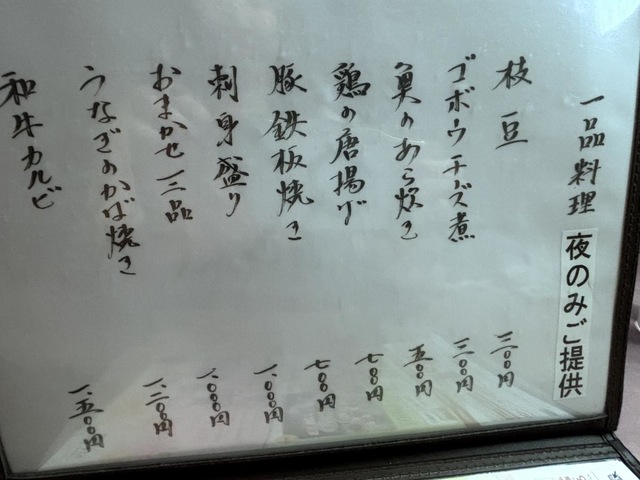 一品料理 夜のみご提供
枝豆 三〇〇円
ゴボウチーズ煮 三〇〇円
魚のあら炊き 五〇〇円
鶏の唐揚げ 七〇〇円
豚鉄板焼き 七〇〇円
刺身盛り 一、〇〇〇円
おまかせ三品 一、〇〇〇円
うなぎのかば焼き 一、二〇〇円
和牛カルビ 一、五〇〇円